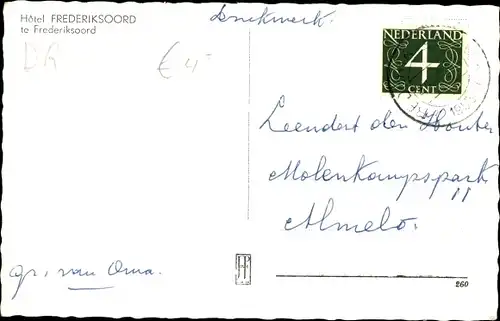 Hôtel FREDERIKSOORD
te Frederiksoord
Drukwerk.
DR
€ 4
NEDERLAND
4
CENT
Leendert den Houter
Molenkampspark
11
Almelo.
gr. van Oma.
260